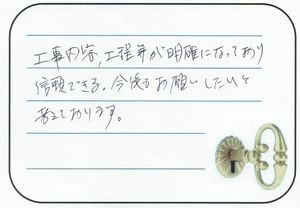 工事内容、工程等が明確になっており
信頼できる。今後もお願いしたいと
考えております。